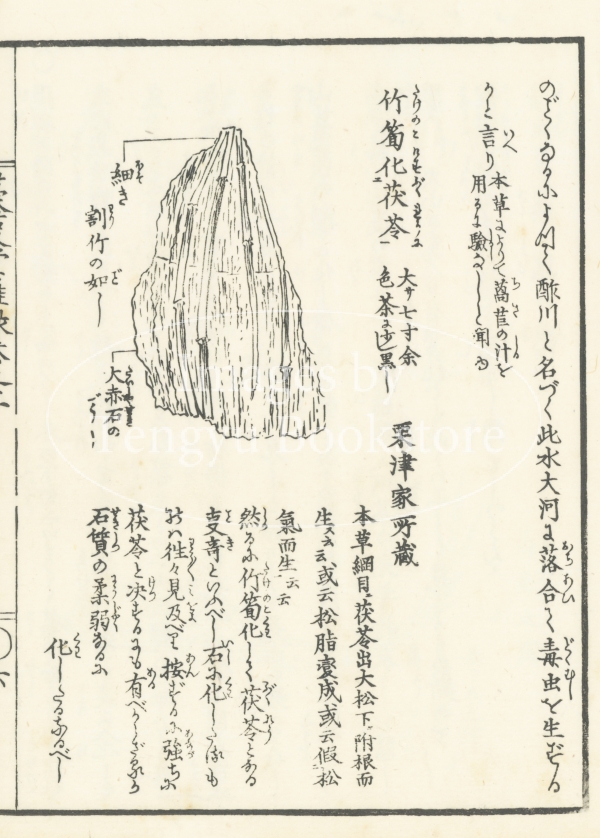 のごとくなるによつて酢川と名づく此水大河に落合て毒虫を生ずる
かと言り
本草によりて萵苣の汁を
用るに驗ありしと聞ゆ
竹筍化茯苓
大サ七寸余
色茶に少し黒し
粟津家所蔵
細き
割竹の如し
大赤石の
ごとし
本草綱目茯苓出大松下附根而
生スト云或云松脂変成或云假松
氣而生云云
然るに竹筍化して茯苓となる
といふべし石に化したるも
往々見及べり按ずるに強ちに
茯苓と决するにも有べからざるか
石質の柔弱なるに
化したるなるべし
Images by
Fengyu Bookstore